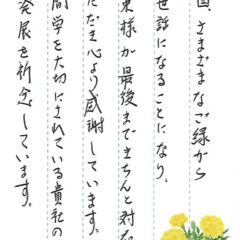 回、さまざまなご縁から
世話になることになり、
東様が最後まできちんと対応
ただき心より感謝しています。
間学を大切にされている貴社の
発展を祈念しています。